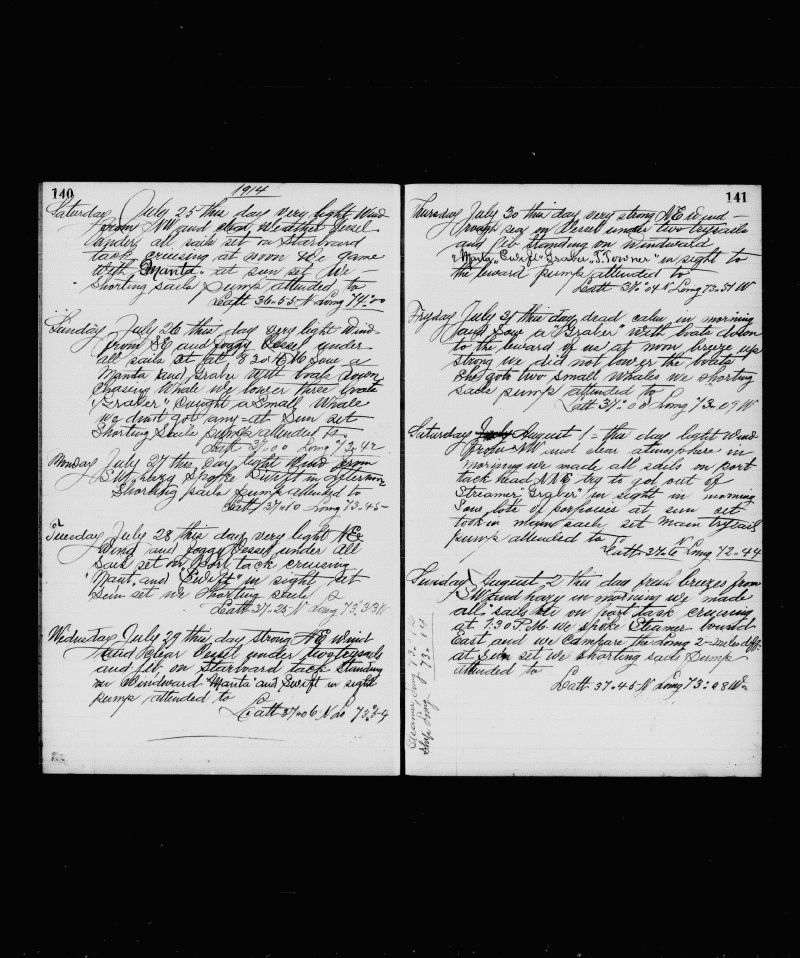 140
1914
Saturday July 25 this day very light Wind
from NW and clear Weather Vessel
under all sails set on Starboard
tack cruising at noon we game
with "Manta" at sun set We
Shorting sails pump attended to
Latt 36-55 N Long 74:00
Sunday July 26 this day very light Wind
from SE and foggy Vessel under
all sails at 8 30 A M Saw a
Manta and Graber with boats down
chasing Whale we lower three boats
"Graber" cought a Small Whale
we dont got any at Sun set
Shorting Sails pump attended to
Latt 37:00 Long 73-42
Monday July 27 this day light Wind from
SW hazy Spoke Swift in afternoon
Shorting sails pump attended to
Latt 37:10 Long 73.45
Tuesday July 28 this day very light NE
Wind and foggy Vessel under all
Sails set on Port tack cruising
"Mant" and "Swift" in sight, at
Sun set we Shorting sails p
Latt 37-25 N Long 73.33 W
Wednesday July 29 this day strong NE Wind
and clear Vessel under two trysails
and jib on Starboard tack Standing
on Windward "Manta" and Swift in sight
pump attended to
Latt 37-06 N Lo 73
141
Thursday July 30 this day very strong NE Wind
rough sea in Vessel under two trysails
and jib standing on windward
"Manta" Swift "Graber" J. Towner" in sight to
the leward pump attended to
Latt 37:04 N Long 73.51 W
Fryday July 31 this day dead calm in morning
Saw a "Graber" with boats down
to the leward of us at noon breeze up
strong we did not lower the boats
She gots two small Whales we shorting
sails pump attended to
Latt 37:00 Long 73.09 W
Saturday August 1 = this day light Wind
from NW and clear atmosphere in
morning we made all sails on port
tack head NNE try to got out of
Streamer "Graber" in sight in morning
Saw lots of porpoises at sun set
took in main sails, set main trysail
pump attended to
Latt 37 N Long 72-44
Sunday August 2 this day fresh breezes from
SW and hazy in morning we made
all sails on port tack cruising
at 7.30 P.M. we spoke Steamer bound
East and we Campare the Long 2-miles diff.
at Sun set we shorting sails Pump
attended to
Latt 37.45 N Long 73:08 W
Steamer Long 73:12
Ship Long 73.14